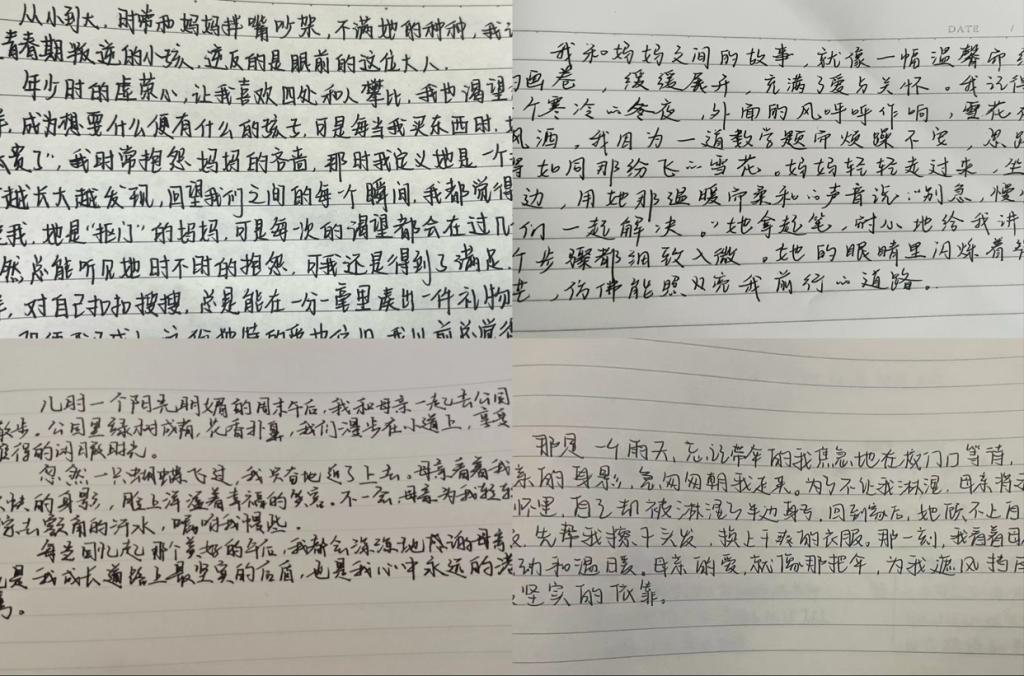 从小到大，时常和妈妈拌嘴吵架，不满她的种种，我
青春期叛逆的小孩，逆反的是眼前的这位大人.
年少时的虚荣心，让我喜欢四处和人攀比，我也渴望
成为想要什么便有什么的孩子，可是每当我买东西时，
贵了"，我时常抱怨妈妈的吝啬，那时我定义她是一个
越长大越发现，回望我们之间的每个瞬间，我都觉得
我，她是"抠门"的妈妈，可是每次的渴望都会在过几
然总能听见她时不时的抱怨，可我还是得到了满足.
，对自己扣扣搜搜，总是能在一分一毫里凑出一件礼物
DATE
我和妈妈之间的故事，就像一幅温馨的
画卷，缓缓展开，充满了爱与关怀。我记得
个寒冷的冬夜，外面的风呼呼作响，雪花
风洒。我因为一道数学题而烦躁不安，思
如同那纷飞的雪花。妈妈轻轻走过来，坐
边，用她那温暖而柔和的声音说："别急，慢
们一起解决。"她拿起笔，耐心地给我讲
个步骤都细致入微。她的眼睛里闪烁着
，仿佛能照亮我前行的道路。
儿时一个阳光明媚的周末午后，我和母亲一起去公园
散步。公园里绿树成荫，花香扑鼻，我们漫步在小道上，享受
难得的闲暇时光。
忽然一只蝴蝶飞过，我兴奋地追了上去。母亲看着我
快的身影，脸上洋溢着幸福的笑容。不一会，母亲为我轻轻
擦去额角的汗水，嘱咐我慢些。
每当回忆起那个美好的午后，我都会深深地感谢母亲
是我成长道路上最坚实的后盾，也是我心中永远的港
湾。
那是一个雨天，忘记带伞的我焦急地在校门口等待，
亲的身影，急匆匆朝我走来。为了不让我淋湿，母亲将
怀里，自己却被淋湿了半边身子，回到家后，她顾不上自
，先帮我擦干头发，换上干爽的衣服。那一刻，我看着母
动和温暖。母亲的爱，就像那把伞，为我遮风挡雨
坚实的依靠。